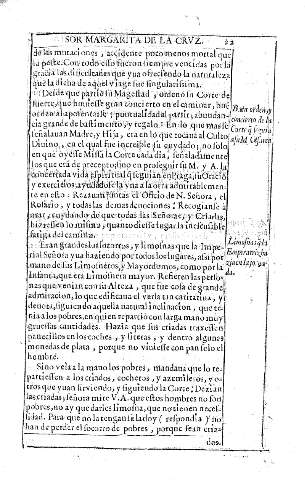 SOR MARGARITA DE LA CRVZ.
de las mutaciones, accidente poco menos mortal que
la peste. Con todo esso fueron siempre vencidas por la
gracia las dificultades que yua ofreciendo la naturaleza
que la dicha de aquel viage fue singularissima.
Desde que partiò su Magestad, ordenò su Corte de
suerte, que huuiesse gran concierto en el caminar, hue
orden al aposentarse, puntualidad al partir, abundan
cia grande de bastimento y regalo: En lo que mas se
señalauan Madre, y Hija, era en lo que tocaua al Culto
Diuino, en el qual fue increible su cuydado, no solo
en que oyesse Missa la Corte cada dia, señaladamente
los que era de precepto, sino en proseguir su M. y A. la
concertada vida espiritual q̃ seguian en Praga, su Oficio
y exercicios, ayudandose la vna a la otra admirablemen
te en esto: Rezauan juntas el Oficio de N. Señora, el
Rosario, y todas las demas deuociones: Recogianse a
orar, cuydando de que todas las Señoras, y Criadas
hiziessen lo mismo, quanto diesse lugar la inescusable
fatiga del camino.
Eran grandes los socorros, y limosnas que la Impe
rial Señora yua haziendo por todos los lugares, assi por
mano de sus Limosneros, y Mayordomos, como por la
Infanta, que era Limosnera mayor. Refieren las perso
nas que venian con su Alteza, que fue cosa de grande
admiracion, lo que edificaua el verla tan caritatiua, y
denota, siguiendo aquella natural inclinacion, que te-
nia a los pobres, en quien repartiò con larga mano muy
gruessas cantidades. Hazia que sus criadas traxessen
panecillos en los coches, y literas, y dentro algunas
monedas de plata, porque no viuiesse con pan solo el
hombre.
Sino veìa a la mano los pobres, mandaua que lo re-
partiessen a los criados, cocheros, y azemileros, y o-
tros que yuan siruiendo, y siguiendo la Corte: Dezian
las criadas, señora mire V. A. que estos hombres no son
pobres, no ay que darles limosna, que no tienen neces-
sidad. Para que no la tengan se la doy (respondia) no
han de perder el socorro de pobres, porque sean cria-
dos.
Limosnas q̃ la
Emperatriz ha